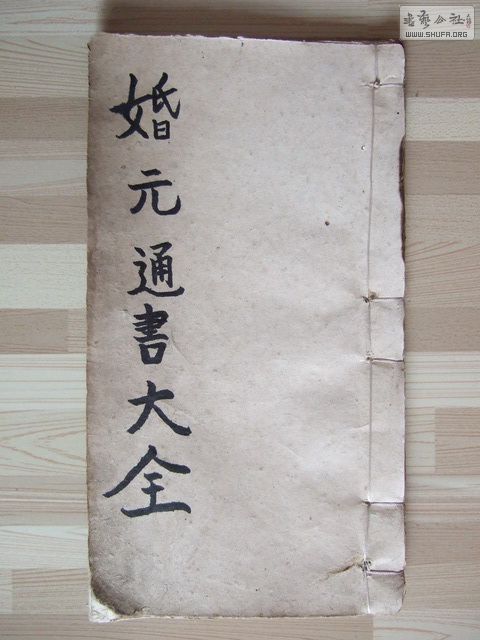 婚元通書大全
書藝公社
WWW.SHUFA.ORG